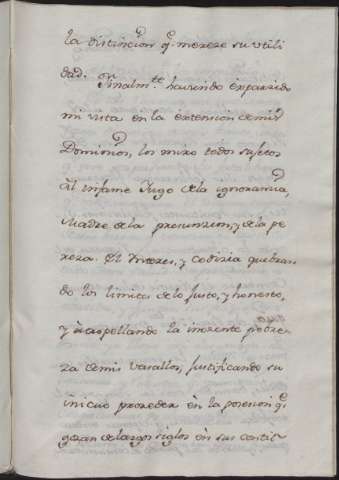 la distincion q. mereze su utili
dad. Finalm.te haviendo esparzido
mi vista en la extension de mis
Dominios, los miro todos sujetos
al infame Iugo de la ignorancia,
Madre de la presunzion, y de la pe
reza. El Interes, y codizia quebran
do los limites de lo Justo, y honesto,
y atropellando la inozente pobre
za de mis vasallos, Justificando su
iniquo prozeder en la posesion q.
gozan de largos siglos en sus